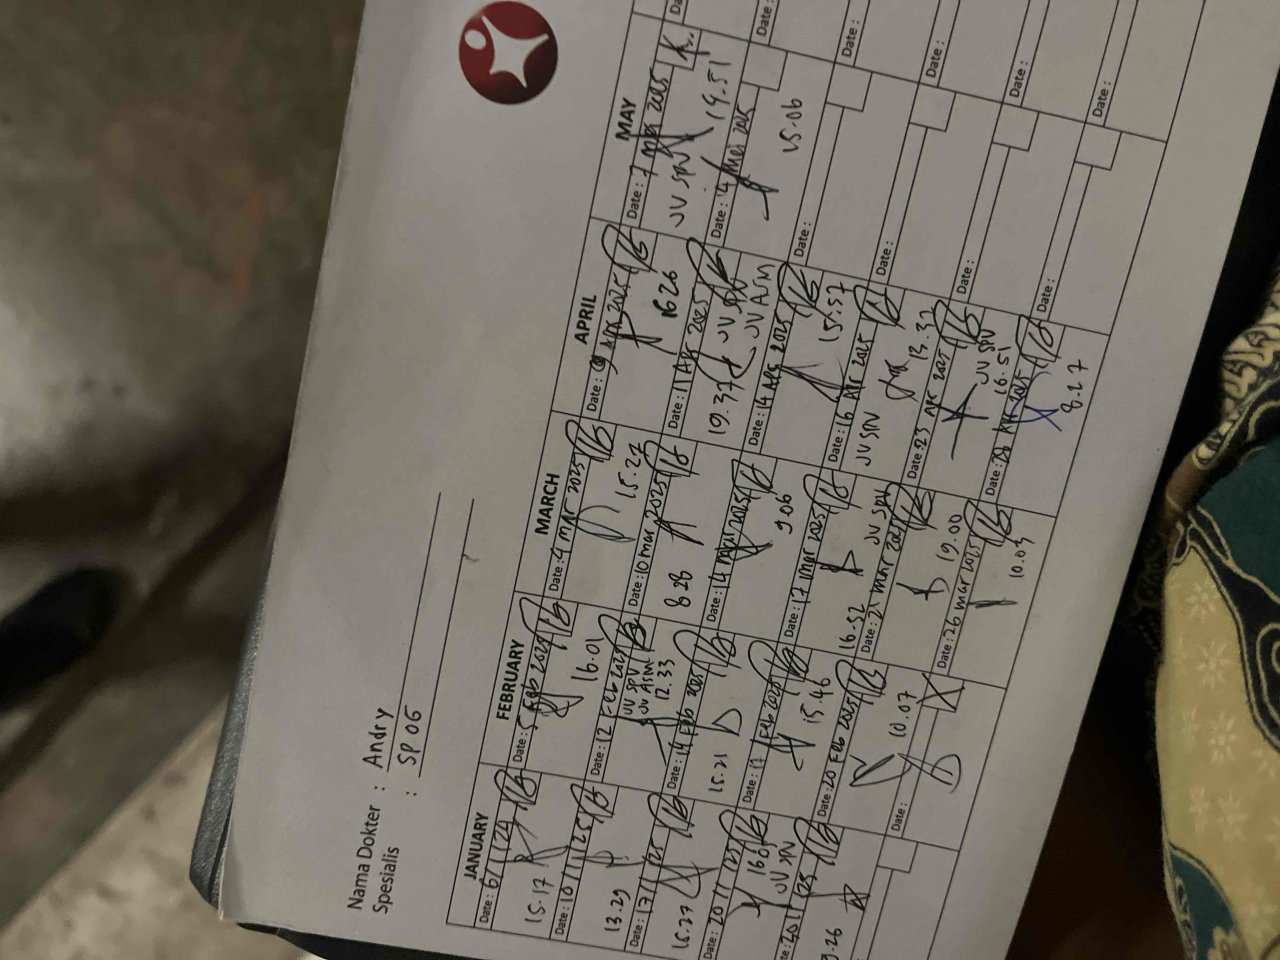 Nama Dokter : Andry
Spesialis : SPOG
JANUARY
Date: 6/1/24
15.17
Date: 10/1/25
13.29
Date: 17/1/25
15.27
Date: 20/1/25
JV SPV
Date:
FEBRUARY
Date: 5 Feb 2025
16.01
Date: 12 Feb 2025
JV SPV
JV ASM
12.33
Date: 14 Feb 2025
15.21
Date: 17 Feb 2025
15.46
Date: 20 Feb 2025
10.07
Date:
MARCH
Date: 4 Mar 2025
15.27
Date: 10 Mar 2025
8.28
Date: 14 Mar 2025
9.06
Date: 17 Mar 2025
16.52
JV SPV
Date: 21 Mar 2025
19.00
Date: 26 Mar 2025
10.03
APRIL
Date: Apr 2025
1626
Date: 11 Apr 2025
19.37
JV SPV
JV ASM
Date: 14 Apr 2025
15.57
Date: 16 Apr 2025
JV SPV
13.32
Date: 23 Apr 2025
JV SPV
16.51
Date: Apr 2025
8.27
MAY
Date: 7 2025
JV SPV
19.51
Date: 14 Mei 2025
15.06
Date:
Date:
Date:
Date:
Date:
Date:
Date:
Date:
Date: